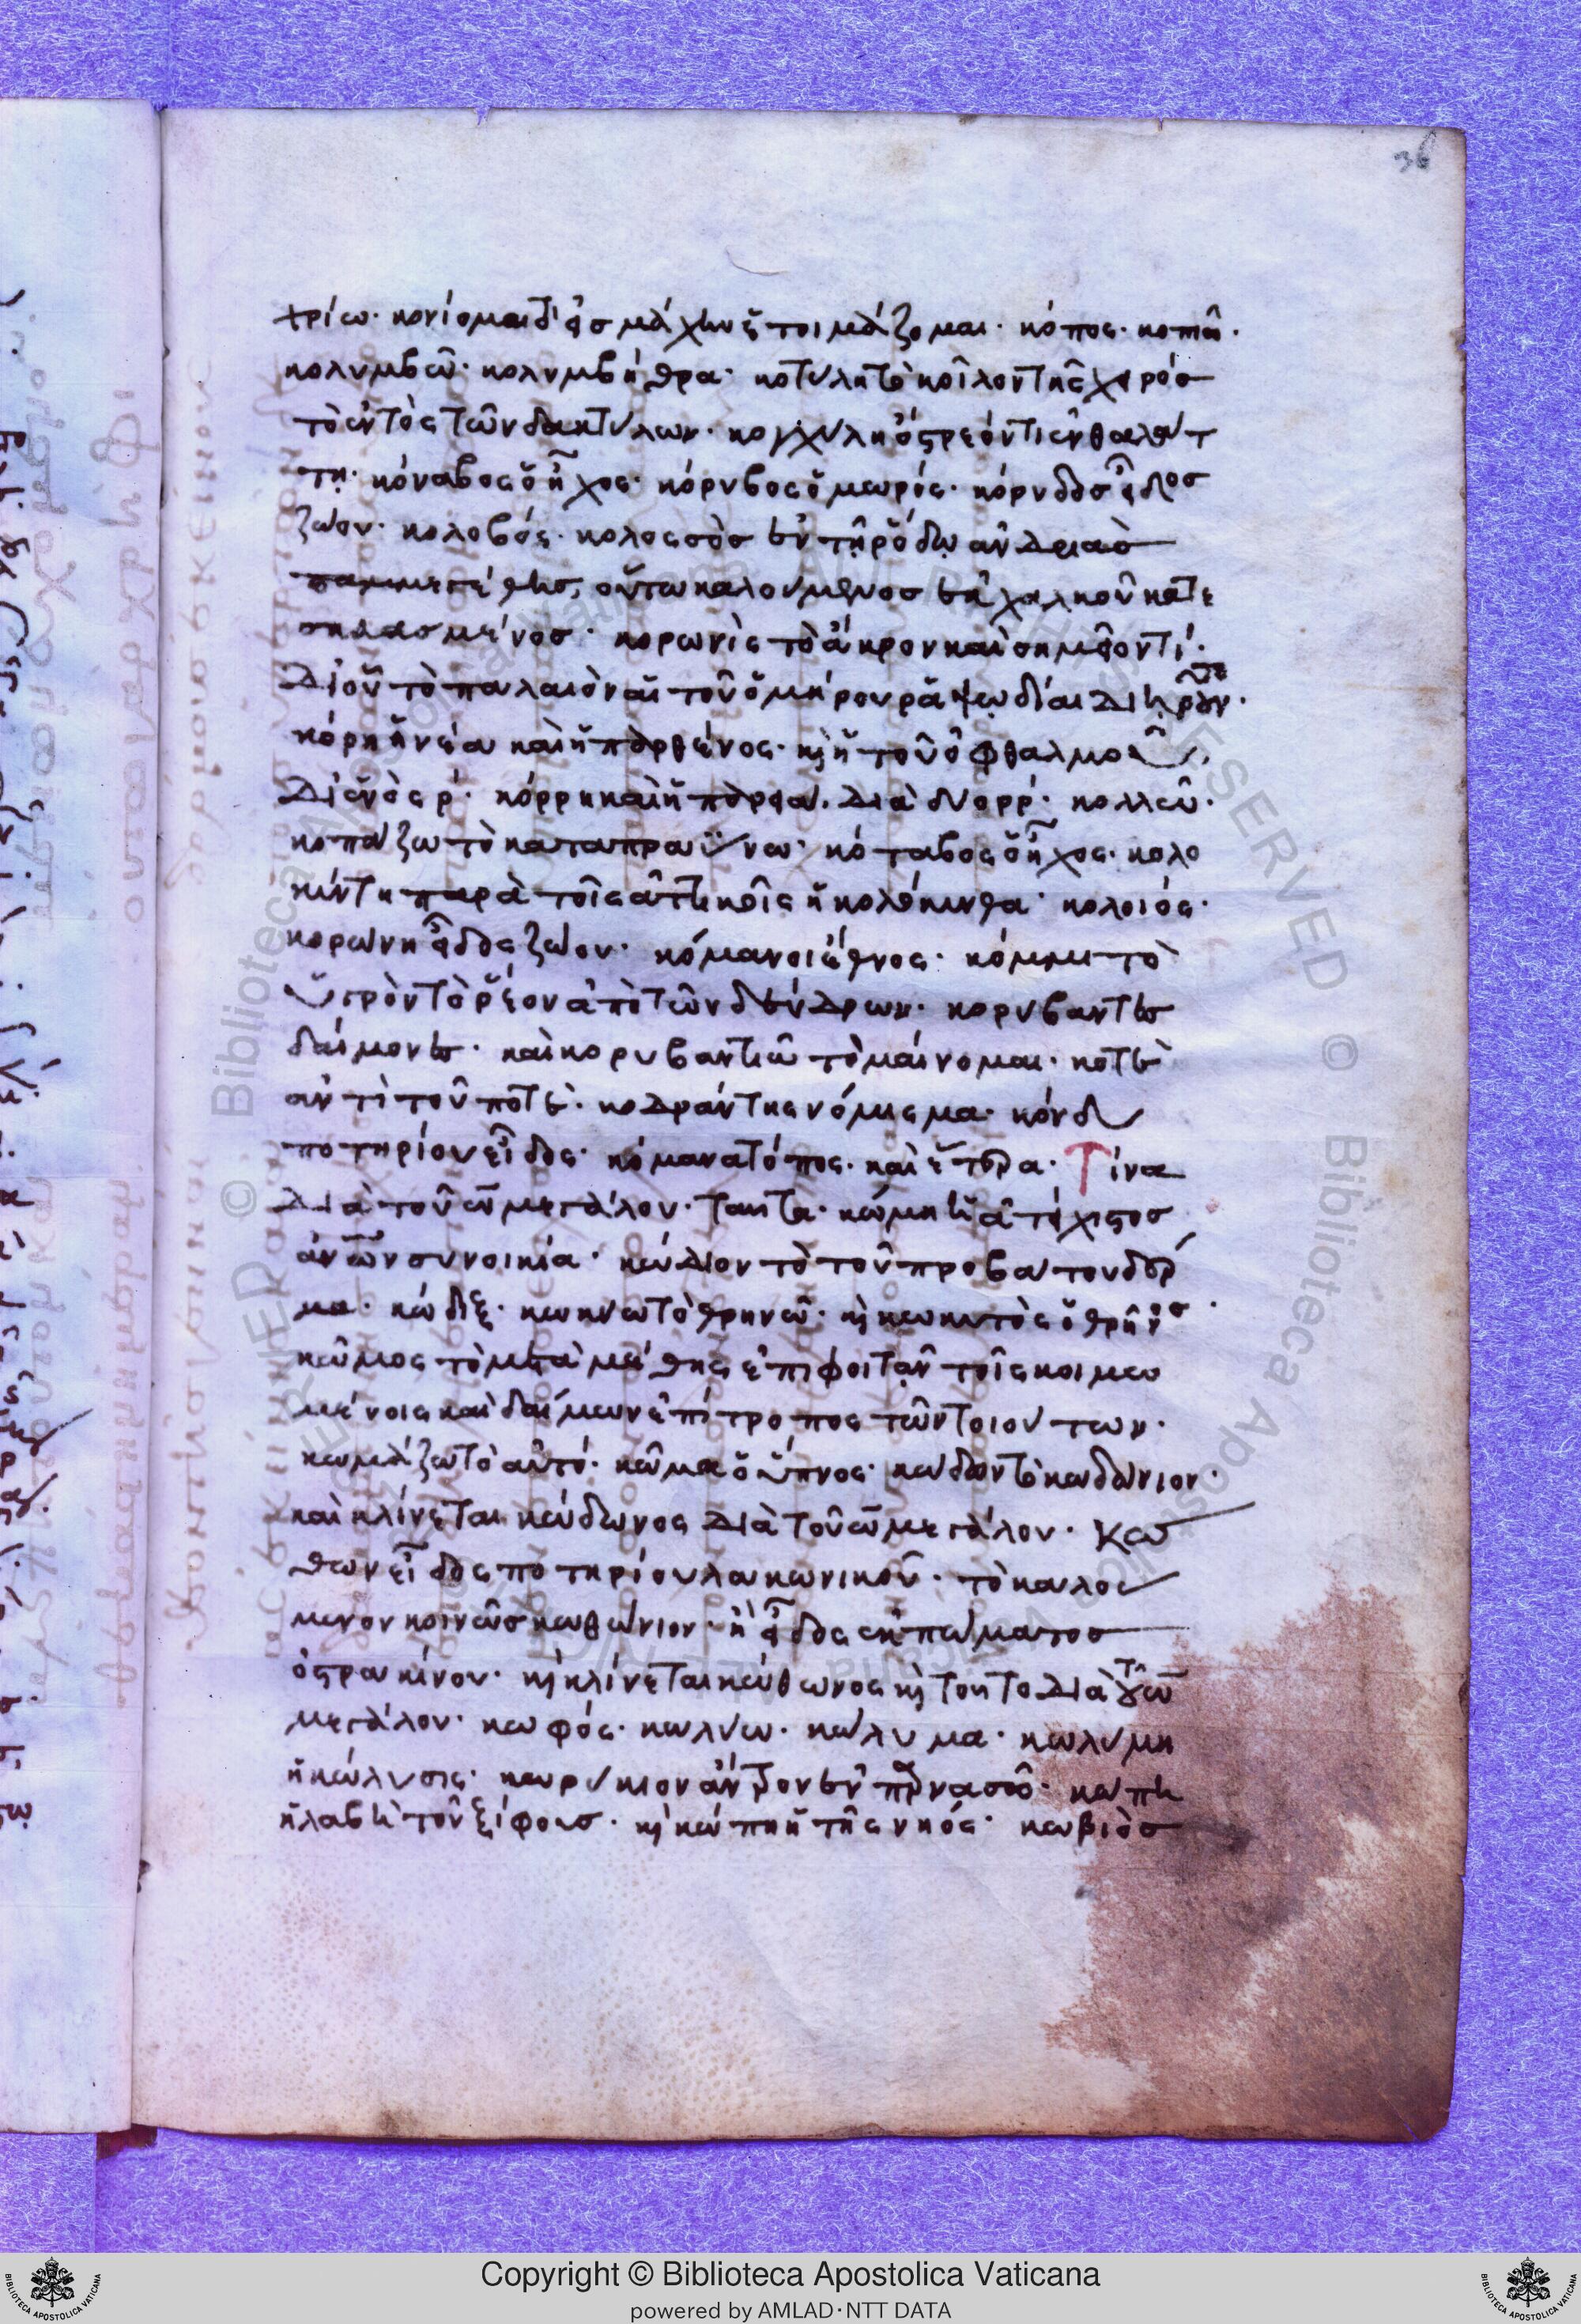 36
χρίω· κονίομαι δ' εἰς μάχην ἑτοιμάζομαι· κόπος· κοπῶ·
κολυμβῶ· κολυμβήθρα· κοτύλη τὸ κοῖλον τῆς χειρός
τὸ ἐντὸς τῶν δακτύλων· κογχύλη ὄστρεόν τι ἐν θαλάτ
τη· κόναβος ὁ ἦχος· κόρυβος ὁ μωρός· κόρυδος εἶδος
ζώου· κολοβός· κολοσσὸς ἐν τῇ ῥόδῳ ἀνδριὰς
παμμεγέθης, οὕτω καλούμενος ἐκ χαλκοῦ κατε
σκευασμένος· κορωνὶς τὸ ἄκρον καὶ σημεῖόν τι·
δι' οὗ τὸ παλαιὸν αἱ τοῦ ὁμήρου ῥαψῳδίαι διῃροῦντο·
κόρη ἡ νέα καὶ ἡ παρθένος· καὶ ἡ τοῦ ὀφθαλμοῦ
δι' ἑνὸς ρ· κόρρη καὶ ἡ παρειά· διὰ δύο ρρ· κολλῶ·
κοπάζω τὸ καταπραΰνω· κότταβος ὁ ἦχος· κολο
κύντη παρὰ τοῖς ἀττικοῖς ἡ κολόκυνθα· κολοιός·
κορώνη εἶδος ζώου· κόμανοι ἔθνος· κόμμι τὸ
ὑγρὸν τὸ ῥέον ἀπὸ τῶν δένδρων· κορύβαντες
δαίμονες· καὶ κορυβαντιῶ τὸ μαίνομαι· κοτὲ
ἀντὶ τοῦ ποτέ· κοδράντης νόμισμα· κόνδυ
ποτηρίου εἶδος· κόμανα τόπος· καὶ ἕτερα· Τίνα
διὰ τοῦ ω μεγάλου· ταῦτα· κώμη ἡ ἀτείχιστος
ἀνων συνοικία· κώδιον τὸ τοῦ προβάτου δέρ
μα· κώδιξ· κωκύω τὸ θρηνῶ· καὶ κωκυτὸς ὁ θρῆνος·
κῶμος τὸ μετὰ μέθης ἐπιφοιτᾶν τοῖς κοιμω
μένοις καὶ δαίμων ἐπίτροπος τῶν τοιούτων·
κωμάζω τὸ αὐτό· κῶμα ὁ ὕπνος· κώδων τὸ κωδώνιον·
καὶ κλίνεται κώδωνος διὰ τοῦ ω μεγάλου· κώ
θων εἶδος ποτηρίου λακωνικοῦ· τὸ καλού
μενον κοινῶς κωθώνιον· ἢ εἶδος ἐκπώματος
ὀστρακίνου· καὶ κλίνεται κώθωνος καὶ τοῦτο διὰ τοῦ ω
μεγάλου· κωφός· κωλύω· κώλυμα· κωλύμη
ἡ κώλυσις· κωρύκιον ἄντρον ἐν παρνασσῷ· κώπη
ἡ λαβὴ τοῦ ξίφους· καὶ κώπη ἡ τῆς νηός· κωβιὸς
Copyright © Biblioteca Apostolica Vaticana
powered by AMLAD·NTT DATA